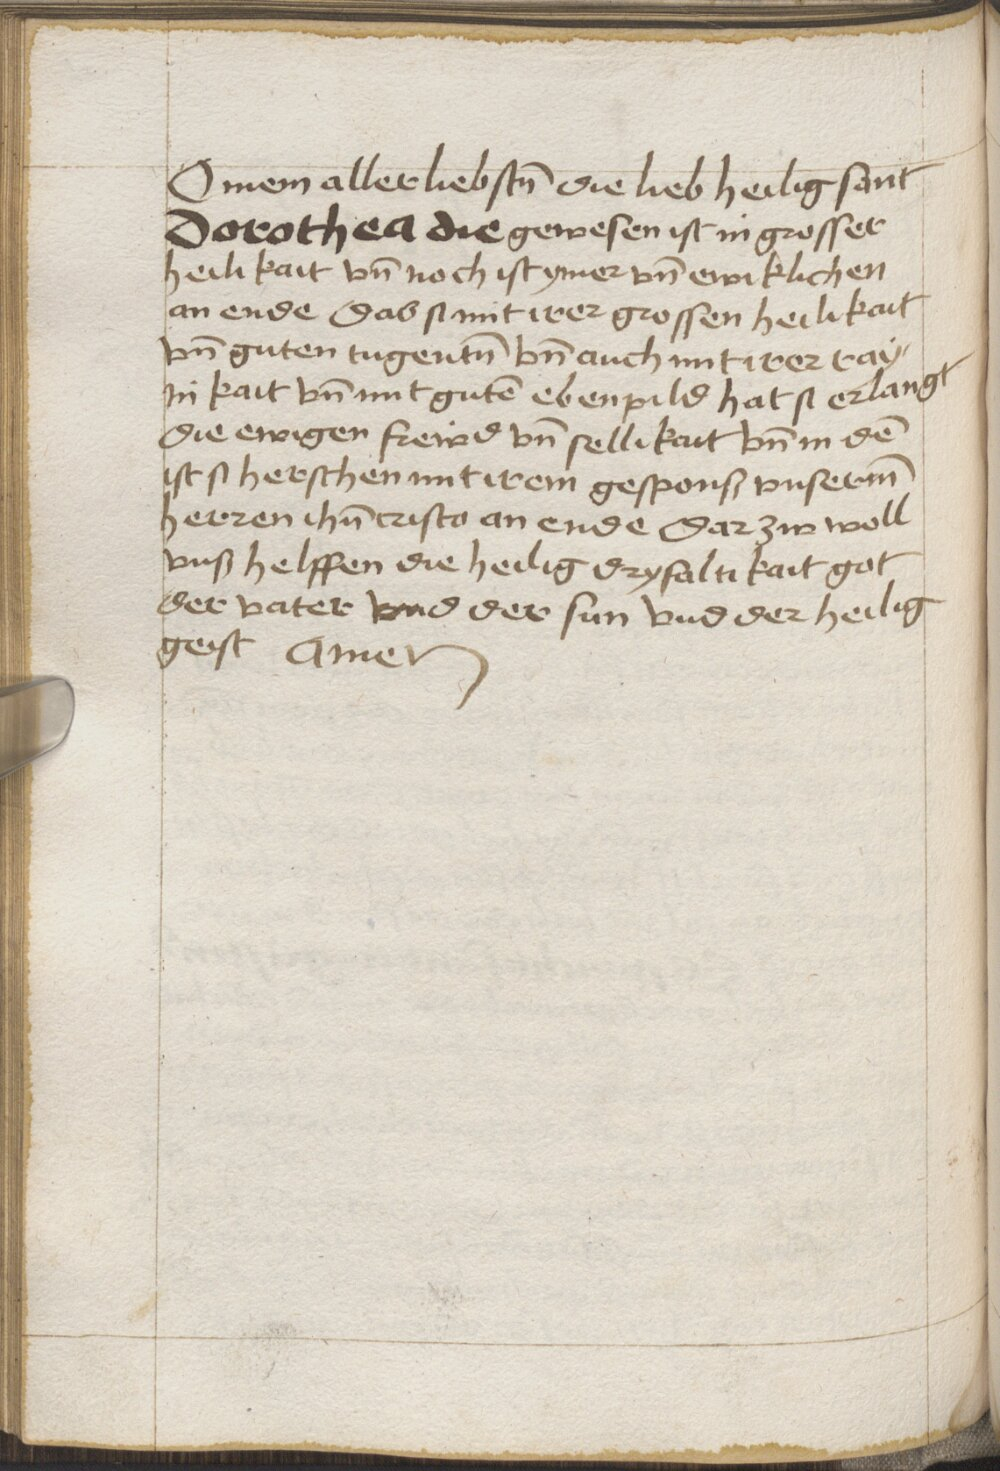 O mein aller liebstn̄ die lieb heilig sant
Dorothea die gewesen ist in grosser
heilikait vn̄ noch ist ymer vn̄ ewiklichen
an ende Das si mit irer grossen heilikait
vn̄ guten tugentn̄ vn̄ auch mit irer ray/
nikait vn̄ mit gutē ebenpild hat si erlangt
die ewigen freẅd vn̄ sellikait vn̄ in dē
ist si herschen mit irem gesponß vnserm̄
herren ihū cristo an ende Dar zw woll
vnß helffen die heilig dryfaltikait got
der vater vnd der sun vnd der heilig
geist Amen